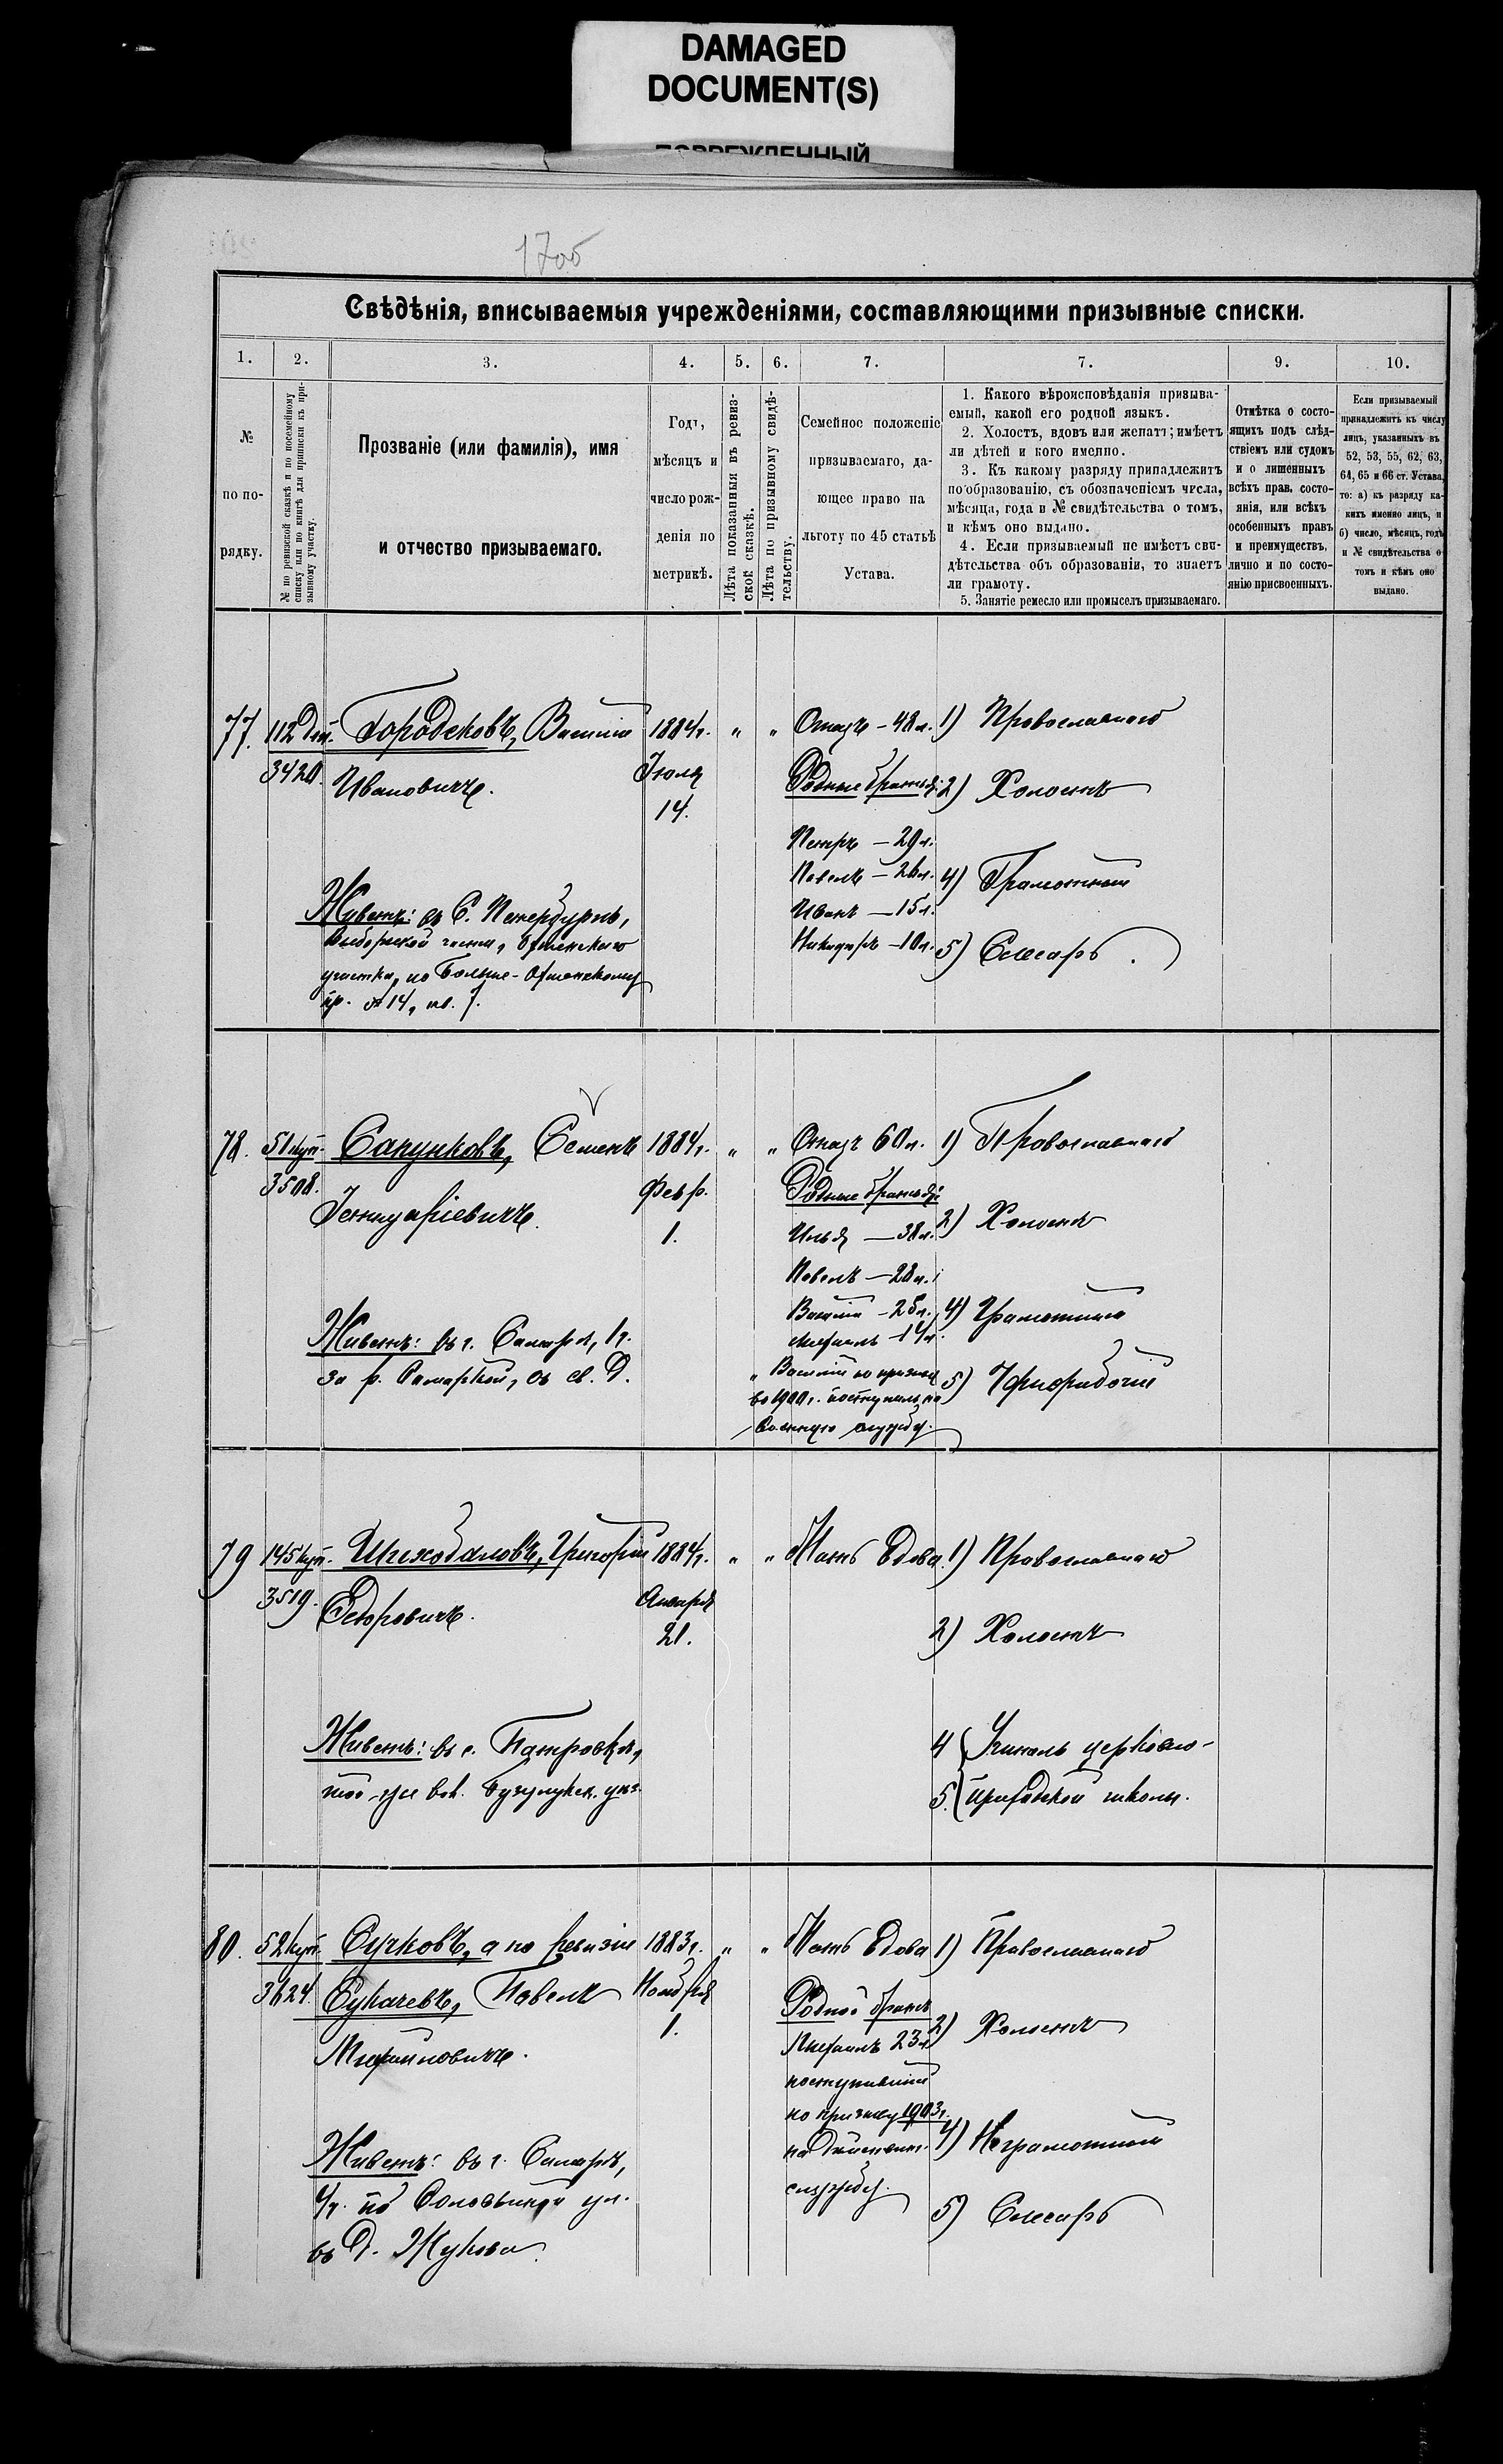 DAMAGED
DOCUMENT(S)
ПОВРЕЖДЕННЫЙ
1705
Свѣдѣнія, вписываемыя учрежденіями, составляющими призывные списки.
1. 2. 3. 4. 5. 6. 7. 7. 9. 10.
№
по по-
рядку.
№ по ревизской сказкѣ и по посемейному
списку или по книгѣ для приписки къ при-
зывному участку.
Прозваніе (или фамилія), имя
и отчество призываемаго.
Годъ,
мѣсяцъ и
число рож-
денія по
метрикѣ.
Лѣта показанныя въ ревиз-
ской сказкѣ.
Лѣта по призывному свидѣ-
тельству.
Семейное положеніе
призываемаго, да-
ющее право на
льготу по 45 статьѣ
Устава.
1. Какого вѣроисповѣданія призыва-
емый, какой его родной языкъ.
2. Холостъ, вдовъ или женатъ; имѣетъ
ли дѣтей и кого именно.
3. Къ какому разряду принадлежитъ
по образованію, съ обозначеніемъ числа,
мѣсяца, года и № свидѣтельства о томъ,
и кѣмъ оно выдано.
4. Если призываемый не имѣетъ сви-
дѣтельства объ образованіи, то знаетъ
ли грамоту.
5. Занятіе ремесло или промыселъ призываемаго.
Отмѣтка о состо-
ящихъ подъ слѣд-
ствіемъ или судомъ
и о лишенныхъ
всѣхъ прав. состо-
янія, или всѣхъ
особенныхъ правъ
и преимуществъ,
лично и по состо-
янію присвоенныхъ.
Если призываемый
принадлежитъ къ числу
лицъ, указанныхъ въ
52, 53, 55, 62, 63,
64, 65 и 66 ст. Устава,
то: а) къ разряду ка-
кихъ именно лицъ, и
б) число, мѣсяцъ, годъ
и № свидѣтельства о
томъ и кѣмъ оно
выдано.
77. 112
3420.
Городсковъ, Василій
Ивановичъ.
Живетъ: въ С. Петербургѣ,
Выборгской части, Охтенскаго
участка, по Больше-Охтенскому
пр. № 14, кв. 7.
1884 г.
Іюля
14.
" "
Отецъ – 48 л.
Родные братья:
Петръ – 29 л.
Павелъ – 26 л.
Иванъ – 15 л.
Никифоръ – 10 л.
1) Православнаго
2) Холостъ
4) Грамотный
5) Слесарь.
78. 51 куп.
3508.
Сапунковъ, Семенъ
Іеннуаріевичъ.
Живетъ: въ г. Самарѣ, 1 ч.
за р. Самаркой, въ св. д.
1884 г.
Февр.
1.
" "
Отецъ 60 л.
Родные братья:
Илья – 38 л.
Павелъ – 28 л.
Василій – 25 л.
Михаилъ – 14 л.
" Василій по призыву
въ 1900 г. поступилъ на
военную службу.
1) Православнаго
2) Холостъ
4) Грамотный
5) Чернорабочій
79 145 куп.
3519.
Шехобаловъ, Григорій
Федоровичъ.
Живетъ: въ с. Патровкѣ,
той-же вол. Бузулукск. уѣз.
1884 г.
Января
21.
" "
Мать вдова
1) Православнаго
2) Холостъ
4 Учитель церковно-
5. приходской школы.
80. 52 куп.
3624.
Сучковъ, а по ревизіи
Сукачевъ, Павелъ
Михайловичъ.
Живетъ: въ г. Самарѣ,
4 ч. по Соловьиной ул.
въ д. Жукова.
1883 г.
Ноября
1.
" "
Мать вдова
Родной братъ
Михаилъ 23 л.
поступившій
по призыву 1903 г.
на дѣйствит.
службу.
1) Православнаго
2) Холостъ
4) Неграмотный
5) Слесарь